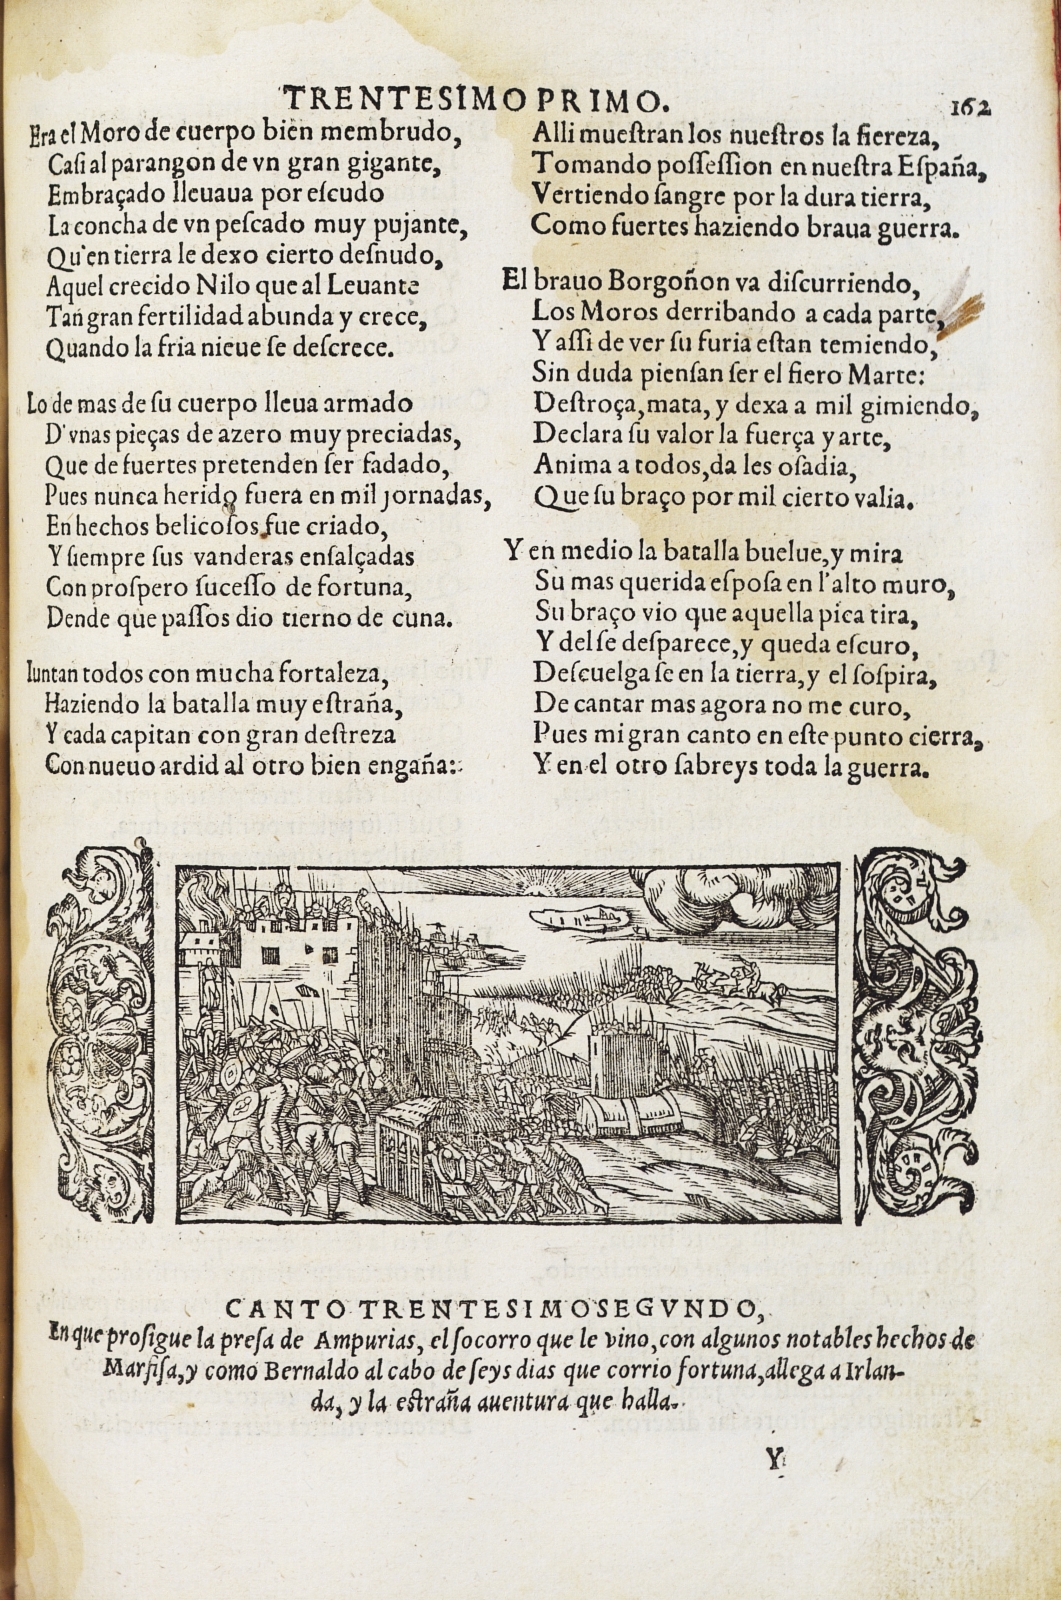 TRENTESIMO PRIMO. 162
Era el Moro de cuerpo bien membrudo,
Casi al parangon de vn gran gigante,
Embraçado lleuaua por escudo
La concha de vn pescado muy pujante,
Qu'en tierra le dexo cierto desnudo,
Aquel crecido Nilo que al Leuante
Tan gran fertilidad abunda y crece,
Quando la fria nieue se descrece.
Lo de mas de su cuerpo lleua armado
D'vnas pieças de azero muy preciadas,
Que de fuertes pretenden ser fadado,
Pues nunca herido fuera en mil jornadas,
En hechos belicosos fue criado,
Y siempre sus vanderas ensalçadas
Con prospero sucesso de fortuna,
Dende que passos dio tierno de cuna.
Iuntan todos con mucha fortaleza,
Haziendo la batalla muy estraña,
Y cada capitan con gran destreza
Con nueuo ardid al otro bien engaña:
Alli muestran los nuestros la fiereza,
Tomando possession en nuestra España,
Vertiendo sangre por la dura tierra,
Como fuertes haziendo braua guerra.
El brauo Borgoñon va discurriendo,
Los Moros derribando a cada parte,
Y assi de ver su furia estan temiendo,
Sin duda piensan ser el fiero Marte:
Destroça, mata, y dexa a mil gimiendo,
Declara su valor la fuerça y arte,
Anima a todos, da les osadia,
Que su braço por mil cierto valia.
Y en medio la batalla buelue, y mira
Su mas querida esposa en l'alto muro,
Su braço vio que aquella pica tira,
Y del se desparece, y queda escuro,
Descuelga se en la tierra, y el sospira,
De cantar mas agora no me curo,
Pues mi gran canto en este punto cierra,
Y en el otro sabreys toda la guerra.
CANTO TRENTESIMO SEGVNDO,
En que prosigue la presa de Ampurias, el socorro que le vino, con algunos notables hechos de
Marfisa, y como Bernaldo al cabo de seys dias que corrio fortuna, allega a Irlan-
da, y la estraña auentura que halla.
Y